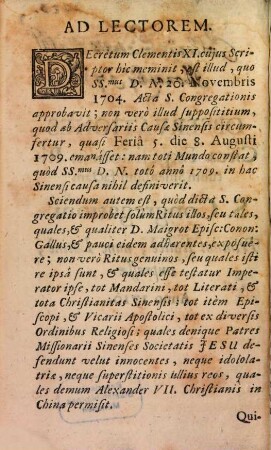 AD LECTOREM.
DEcretum Clementis XI. cujus Scri-
ptor hic meminit, est illud, quo
SS.mus D. N. 20. Novembris
1704. Acta S. Congregationis
approbavit; non verò illud supposititium,
quod ab Adversariis Causæ Sinensis circum-
fertur, quasi Feriâ 5. die 8. Augusti
1709. emanâsset: nam toti Mundo constat,
quòd SS.mus D. N. toto anno 1709. in hac
Sinensi causa nihil definiverit.
Sciendum autem est, quòd dicta S. Con-
gregatio improbet solùm Ritus illos, seu tales,
quales, & qualiter D. Maigrot Episc: Conon:
Gallus, & pauci eidem adhærentes, exposuê-
re; non verò Ritus genuinos, seu quales isti
re ipsâ sunt, & quales esse testatur Impe-
rator ipse, tot Mandarini, tot Literati, &
tota Christianitas Sinensis; tot itèm Epi-
scopi, & Vicarii Apostolici, tot ex diversis
Ordinibus Religiosi; quales denique Patres
Missionarii Sinenses Societatis JESU de-
fendunt velut innocentes, neque idolola-
triæ, neque superstitionis ullius reos, qua-
les demum Alexander VII. Christianis in
China permisit.
Qui-